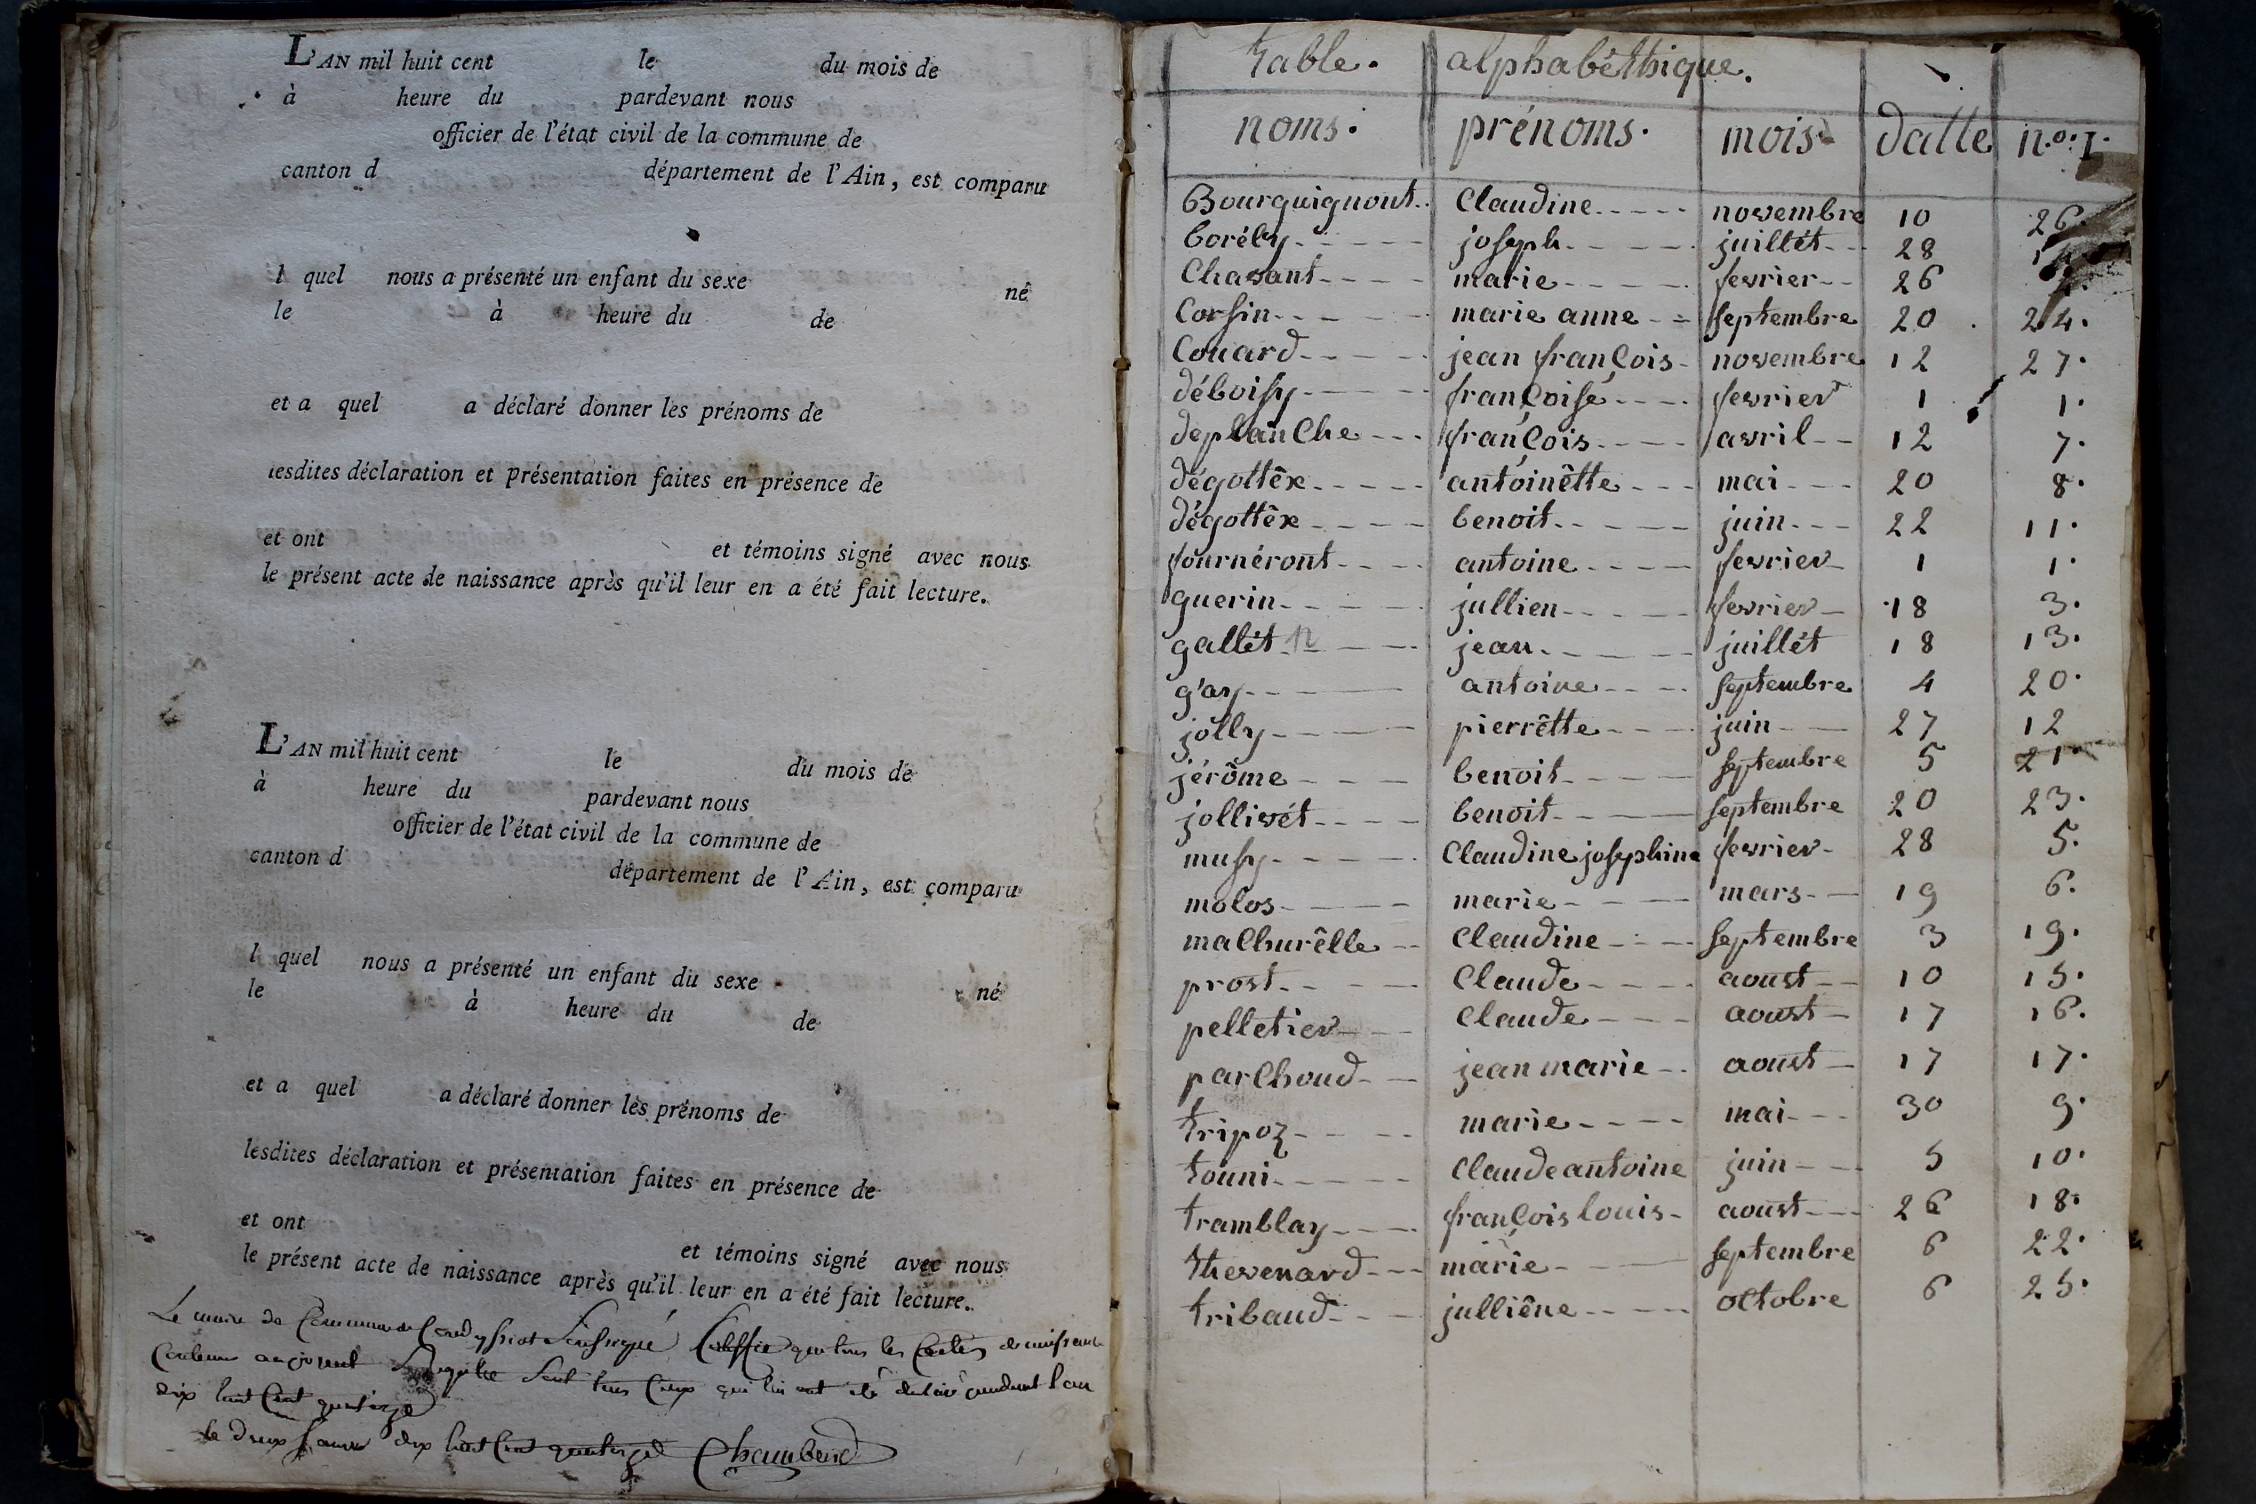 L'AN mil huit cent le du mois de
à heure du pardevant nous
officier de l'état civil de la commune de
canton d département de l'Ain, est comparu
l quel nous a présenté un enfant du sexe né
le à heure du de
et a quel a déclaré donner les prénoms de
lesdites déclaration et présentation faites en présence de
et ont et témoins signé avec nous
le présent acte de naissance après qu'il leur en a été fait lecture.
L'AN mil huit cent le du mois de
à heure du pardevant nous
officier de l'état civil de la commune de
canton d département de l'Ain, est comparu
l quel nous a présenté un enfant du sexe né
le à heure du de
et a quel a déclaré donner les prénoms de
lesdites déclaration et présentation faites en présence de
et ont et témoins signé avec nous
le présent acte de naissance après qu'il leur en a été fait lecture.
Le maire de Commune de que tous les de
sont tous ceux qui lui ont été pendant l'an
dix huit Cent
le deux dix huit Cent
table. alphabéthique.
noms. prénoms. mois datte n.o.1.
Bourguignont Claudine novembre 10 26.
borély joseph juillét 28
Chavant marie fevrier 26
Corsin marie anne septembre 20 24.
Couard jean françois novembre 12 27.
déboisy françoisé fevrier 1 1.
deplanche françois avril 12 7.
dégottêx antoinêtte mai 20 8.
dégottêx benoit juin 22 11.
fournéront antoine fevrier 1 1.
guerin jullien fevrier 18 3.
gallét jean juillét 18 13.
g'ay antoine septembre 4 20.
jolly pierrêtte juin 27 12
jérôme benoit septembre 5 21.
jollivét benoit septembre 20 23.
musy Claudine josephine fevrier 28 5.
molos marie mars 19 6.
malchurêlle Claudine septembre 3 19.
prost Claude aoust 10 15.
pelletier Claude aoust 17 16.
parchoud jean marie aoust 17 17.
tripoz marie mai 30 9.
touni Claude antoine juin 5 10.
tramblay françois louis aoust 26 18.
thevenard marie septembre 6 22.
tribaud julliêne octobre 6 25.